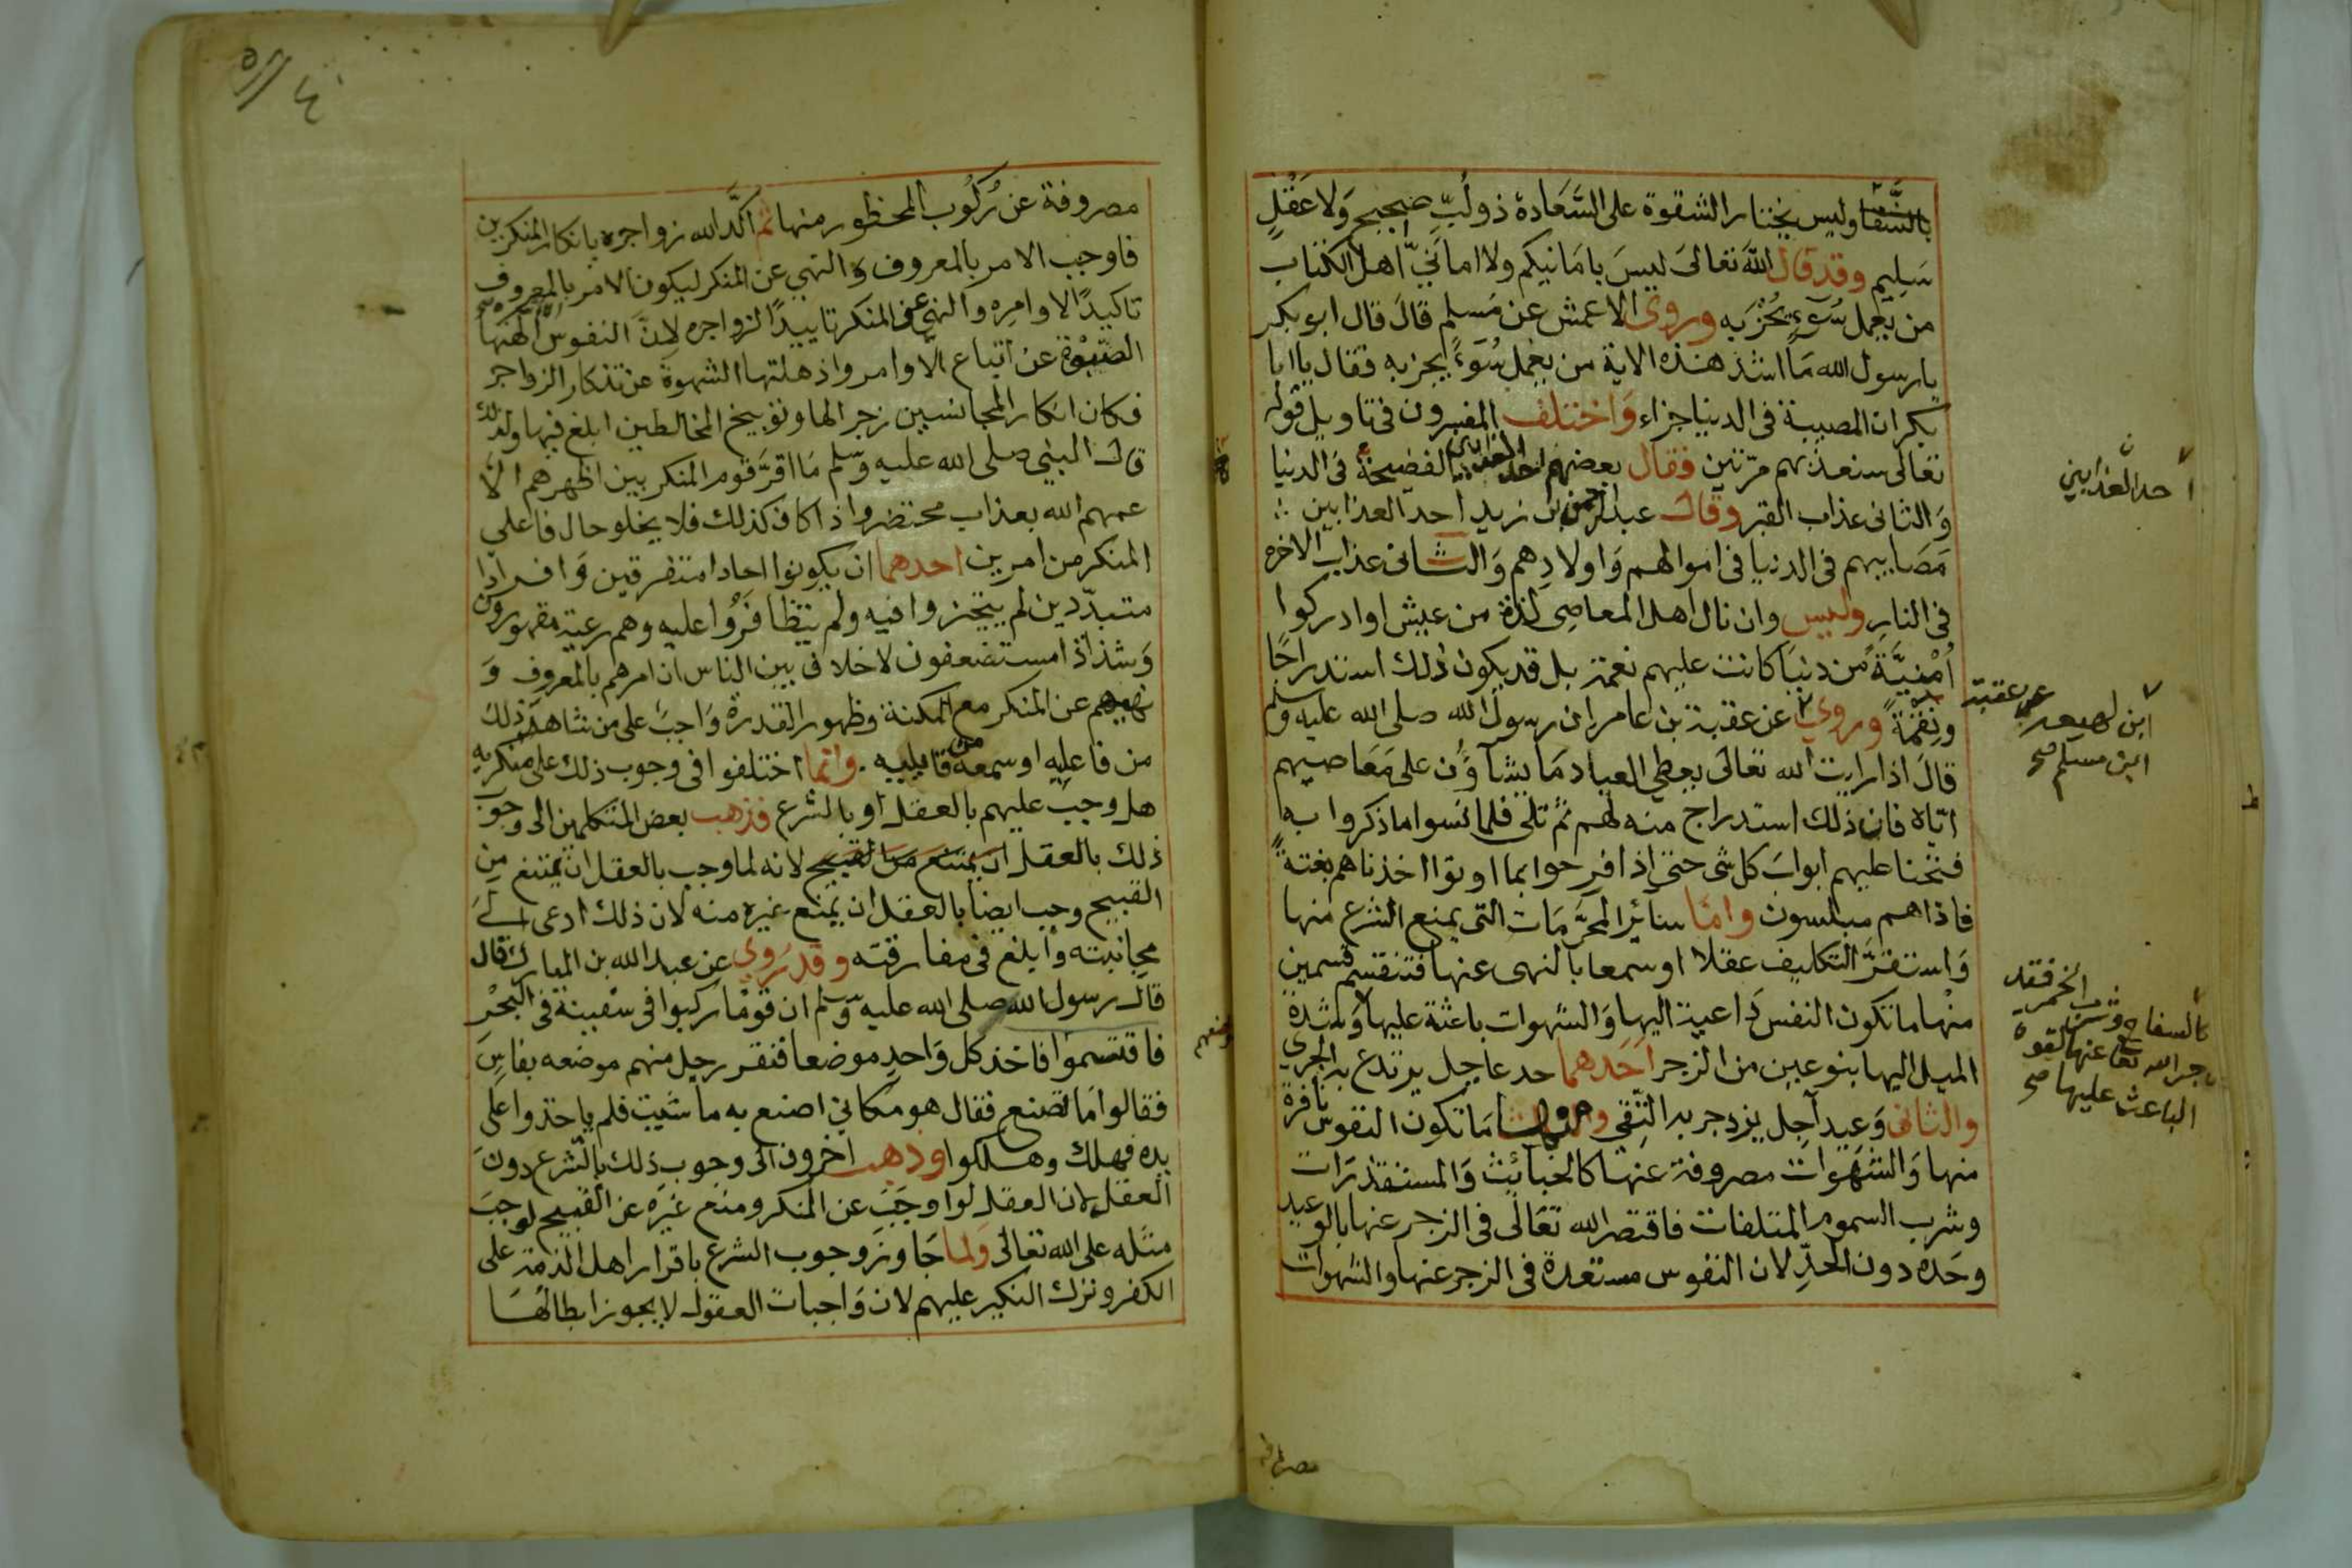 بالشقا وليس يختار الشقوة على السَّعَادة ذو لُبّ صحيح وَلا عَقْلٍ
سَلِيم وقد قال الله تعالى ليسَ بامَانيكم ولا امانيّ اهل الكتاب
من يعمل سُوءً يُجْزَ به وروى الاعمش عن مُسلم قالَ قال ابو بكر
يا رسول الله مَا اشد هذه الاية من يعمل سُوَءً يجز به فقال يا ابا
بكر ان المصيبة فى الدنيا جزاء وَاختلف المفسرون فى تاويل قوله
تعالى سنعذبهم مرّتين فقال بعضهم احد العذابين الفضيحة فى الدنيا
وَالثانى عذاب القبر وقال عبد الرحمن بن زيد احد العذابين
مَصَايبهم فى الدنيا فى اموالهم وَاولادِهم وَالثانى عذاب الاخره
فى النارِ وليس وان نال اهل المعاصِى لذة من عيش او ادركوا
اُمْنِيَّةً من دنيَا كانت عليهم نعمة بل قد يكون ذلك استدراجًا
ونِقْمَةً وروي عن عقبة بن عامر ان رسول الله صلى الله عليه وسلم
قالَ اذا رايت الله تعالى يعطي العباد مَا يشآؤُن على مَعَاصيهم
ايّاه فان ذلك استدراج منه لهم ثم تلى فلما نسوا ما ذكروا به
فتحنا عليهم ابوابَ كل شى حتى اذا فرحوا بما اوتوا اخذناهم بغتةً
فاذا هم مبلسون وامّا سائر المحرَّمَات التى يمنع الشرع منها
وَاستقرَّ التكليف عقلا او سمعا بالنهى عنها فتنقسم قسمين
منها ما تكون النفس دَاعية اليها وَالشهوات باعثة عليها وَشدة
الميل اليها بنوعين من الزجر احَدهما حد عاجل يرتدع به الجرى
والثانى وَعِيد آجِل يزدجر به التقي ما تكون النفوس نافرة
منها وَالشهَوات مصروفة عنها كالخبائث وَالمستقذرَات
وشرب السموم المتلفات فاقتصر الله تعَالى فى الزجر عنها بالوعيد
وحَده دون الحدِّ لان النفوس مستعدة فى الزجر عنها والشهوات
احد العذابين
عن عقبة
ابن لهيعه
ابن مسلم صح
كالسفاح وشرب الخمر فقد
زجر الله تعا عنها لقوة
الباعث عليها صح
مصروفة
مصروفة عن رُكُوب المحظور منها ثم اكَّد الله زواجره بانكار المنكرين
فاوجب الامر بالمعروف وَالنهي عن المنكر ليكون الامر بالمعروف
تاكيدًا لاوامِره والنهي عن المنكر تاييدًا لزواجره لانَّ النفوس الهتها
الصَّبْوَة عن اتباع الاوامر واذهلتها الشهوة عن تذكار الزواجر
فكان انكار المجانسين زجر الها وتوبيخ المخالطين ابلغ فيها ولذلك
قال النبي صلى الله عليه وسلم مَا اقرَّ قوم المنكر بين اظهرهم الا
عمهم الله بعذاب محتضر واذا كان كذلك فلا يخلو حال فاعلى
المنكر من امرين احدهما ان يكونوا احادا متفرقين وَافرادا
متبدّدين لم يتحزوا فيه ولم يتظافَرُوا عليه وهم رعية مقهورون
وَشذاذ مستضعفون لا خلاف بين الناس ان امرهم بالمعروف وَ
نهيهم عن المنكر مع المكنة وظهور القدرة وَاجب على من شاهد ذلك
من فاعليه او سمعه من قايليه . وانما اختلفوا فى وجوب ذلك على منكريه
هل وجبَ عليهم بالعقل او بالشرع فذهب بعض المتكلمين الى وجوب
ذلك بالعقل ان يمتنع من القبيح لانه لما وجب بالعقل ان يمتنع من
القبيح وجب ايضا بالعقل ان يمنع غيره منه لان ذلك ادعى الى
مجانبته وابلغ فى مفارقته وقد رَوي عن عبد الله بن المبارك قال
قال رسول الله صلى الله عليه وسلم ان قوْمًا ركبوا فى سفينة فى البَحْر
فاقتسموا فاخذ كل وَاحدٍ موضعا فنقر رجل منهم موضعه بفاسٍ
فقالوا مَا تصنع فقال هو مكاني اصنع به ما شيت فلم ياخذوا على
يده فهلك وهلكوا وذهب اخرون الى وجوب ذلك بالشرع دونَ
العقل لان العقل لو اوجَبَ عن المنكر ومنع غيره عن القبيح لوجبَ
مثله على الله تعالى ولما جَاوز وجوب الشرع باقرار اهل الذمة على
الكفر وترك النكير عليهم لان وَاجبات العقول لا يجوز ابطالهَا